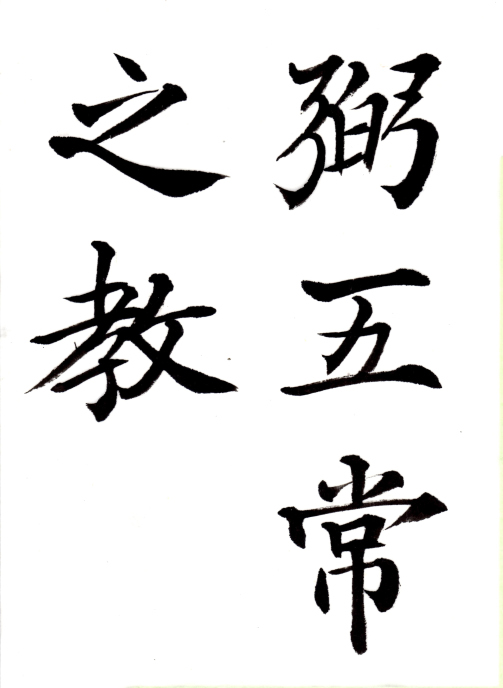 弼五常
之教